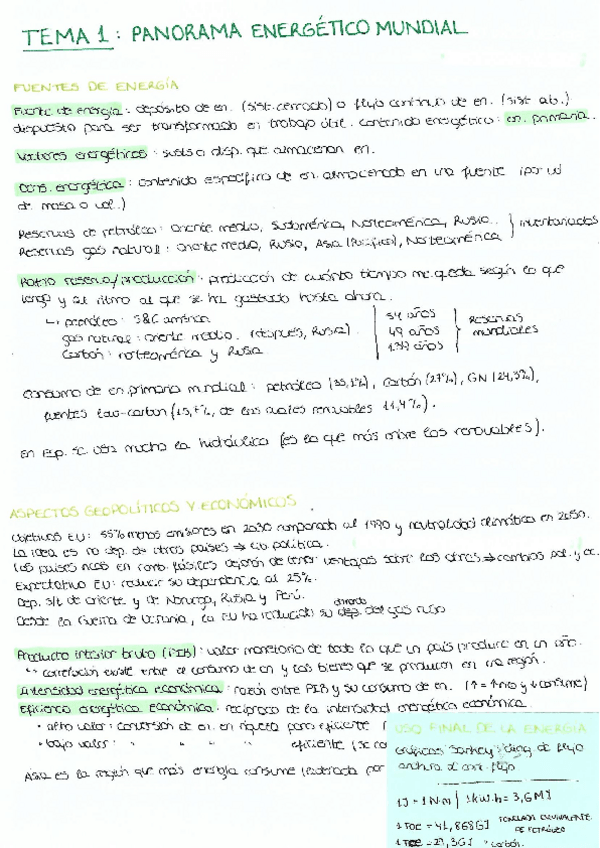 TEMA 1: PANORAMA ENERGÉTICO MUNDIAL
FUENTES DE ENERGÍA
Fuente de energía: depósito de en. (sist. cerrado) o flujo continuo de en. (sist. ab.)
dispuesto para ser transformado en trabajo útil. contenido energético: en. primaria.
Vectores energéticos: susts o disp. que almacenan en.
Dens. energética: contenido específico de en. almacenado en una fuente (por ud
de masa o vol.)
Reservas de petróleo: oriente medio, Sudamérica, Norteamérica, Rusia.. } inventariados
Reservas gas natural: oriente medio, Rusia, Asia (Pacífico), Norteamérica
Ratio reserva/producción: predicción de cuánto tiempo me queda según lo que
tengo y al ritmo al que se ha gastado hasta ahora.
↳ petróleo: S&C américa | 54 años } Reservas
gas natural: oriente medio. (después, Rusia). | 49 años mundiales
Carbón: norteamérica y Rusia | 139 años
Consumo de en. primaria mundial: petróleo (33,1%), carbón (27%), GN (24,3%),
fuentes low-carbon (15,7%, de las cuales renovables 11,4%).
en Esp. se usa mucho la hidráulica (es la que más entre las renovables).
ASPECTOS GEOPOLÍTICOS Y ECONÓMICOS
Objetivos EU: 55% menos emisiones en 2030 comparado al 1990 y neutralidad climática en 2050.
La idea es no dep. de otros países ⇒ política.
Los países ricos en comb. fósiles dejarán de tener ventajas sobre los otros ⇒ cambios pol. y ec.
Expectativa EU: reducir su dependencia al 25%.
Dep. s/t de oriente y de Noruega, Rusia y Perú.
Desde la Guerra de Ucrania, la EU ha reducido su dep. del gas ruso
Producto interior bruto (PIB): valor monetario de todo lo que un país produce en un año.
↳ correlación existe entre el consumo de en y los bienes que se producen en una región.
Intensidad energética económica: razón entre PIB y su consumo de en. (
Eficiencia energética económica: recíproca de la intensidad energética económica.
• alto valor: conversión de en. en riqueza poco eficiente
• bajo valor: " " " " eficiente (se
Asia es la región que más energía consume (liderada por
USO FINAL DE LA ENERGÍA
Gráficos Sankey: diag. de flujo
anchura
1J = 1 N·m | 1kW.h = 3,6MJ
1 TOE = 41,868GJ TONELADA EQUIVALENTE
DE PETRÓLEO
" carbón.